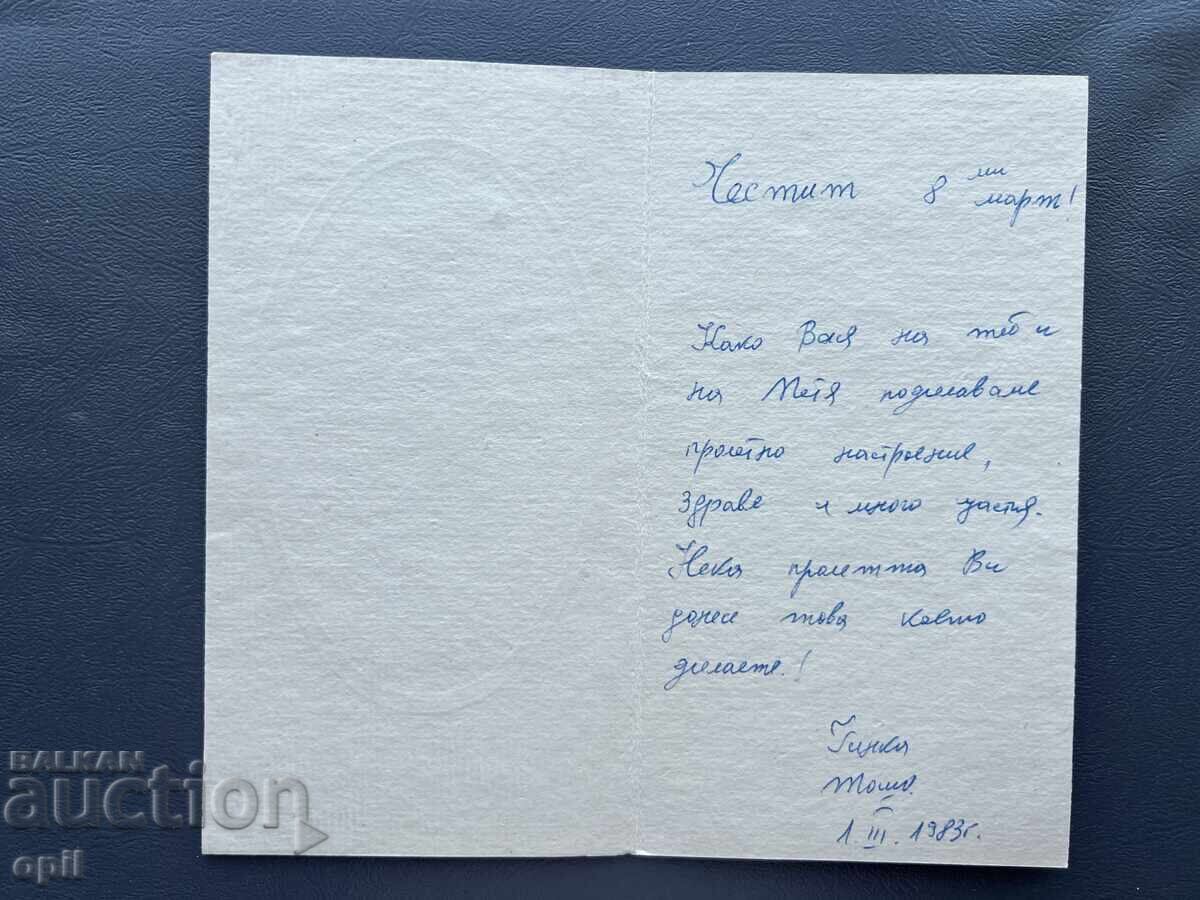 Честит 8ми март!
Како Вася на теб и
на Петя пожелаваме
пролетно настроение,
здраве и много щастия.
Нека пролетта Ви
донесе това което
желаете!
Гинка
Тома
1. III. 1983г.
BALKAN
auction
opil